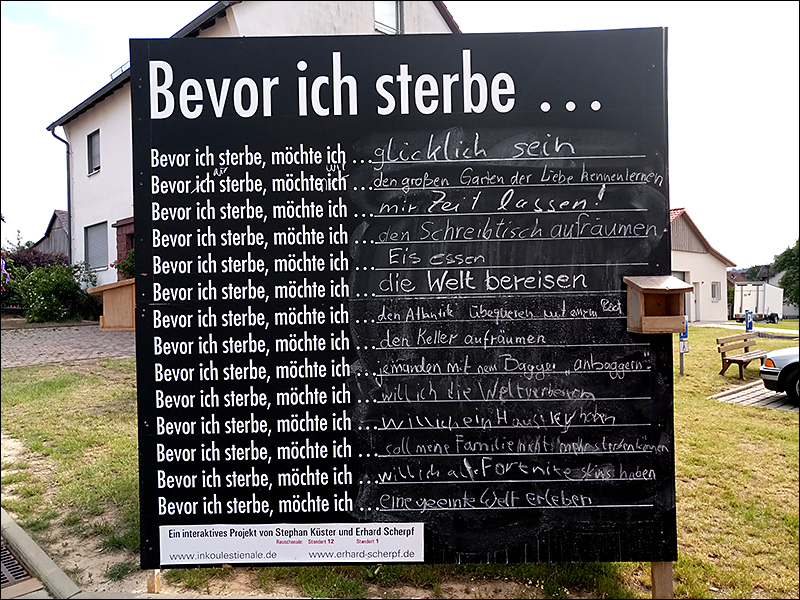 Bevor ich sterbe ...
Bevor ich sterbe, möchte ich ... glücklich sein
Bevor ich sterbe, möchte ich ... den großen Garten der Liebe kennenlernen
Bevor ich sterbe, möchte ich ... mir Zeit lassen!
Bevor ich sterbe, möchte ich ... den Schreibtisch aufräumen.
Bevor ich sterbe, möchte ich ... Eis essen
Bevor ich sterbe, möchte ich ... die Welt bereisen
Bevor ich sterbe, möchte ich ... den Atlantik überqueren mit einem Boot
Bevor ich sterbe, möchte ich ... den Keller aufräumen
Bevor ich sterbe, möchte ich ... jemanden mit nem Bagger "anbaggern"
Bevor ich sterbe, möchte ich ... will ich die Weltverbessern
Bevor ich sterbe, möchte ich ... will ich ein haben
Bevor ich sterbe, möchte ich ... soll meine Familie nicht mehr sterben können
Bevor ich sterbe, möchte ich ... will ich alle Fortnite skins haben
Bevor ich sterbe, möchte ich ... eine geeinte Welt erleben
Ein interaktives Projekt von Stephan Küster und Erhard Scherpf
Rauschenale: Standort 12 Standort 1
www.inkoulestienale.de www.erhard-scherpf.de